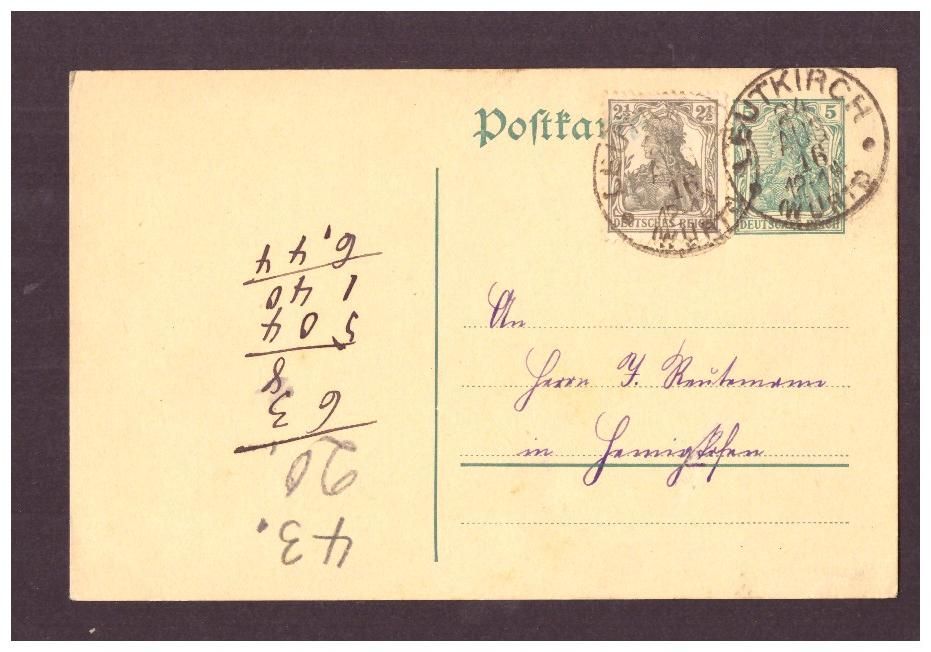 Postkar
2½ 2½
DEUTSCHES REICH
5
DEUTSCHES REICH
LEUTKIRCH
24
AUG
16
(WÜRTB
16
(WÜRTB
An
Herrn J. Reutemann
in Hemigkofen
43.
20
6 3
8
5 0 4
1 4 0
6,4 4